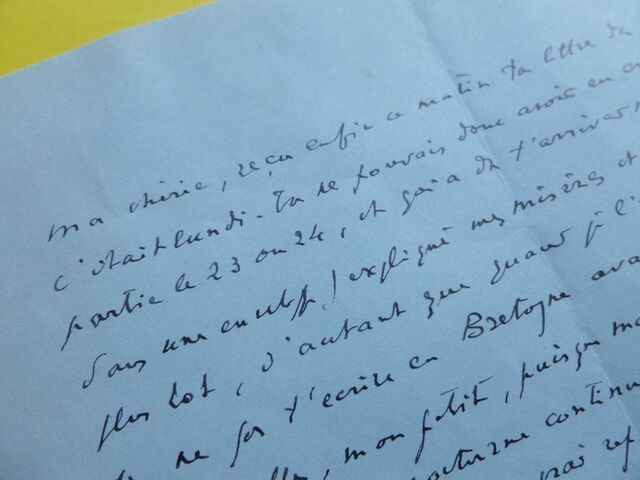 ma chérie, reçu enfin ce matin ta lettre de
c'était lundi. Tu ne pouvais donc avoir en
partie le 23 ou 24, et ça a dû t'arriver
dans une j expliqué mes misères et
plus tôt, d'autant que quand je l'
ne pas t'écrire en Bretagne ava
mon petit, puisque ma
nocturne continu